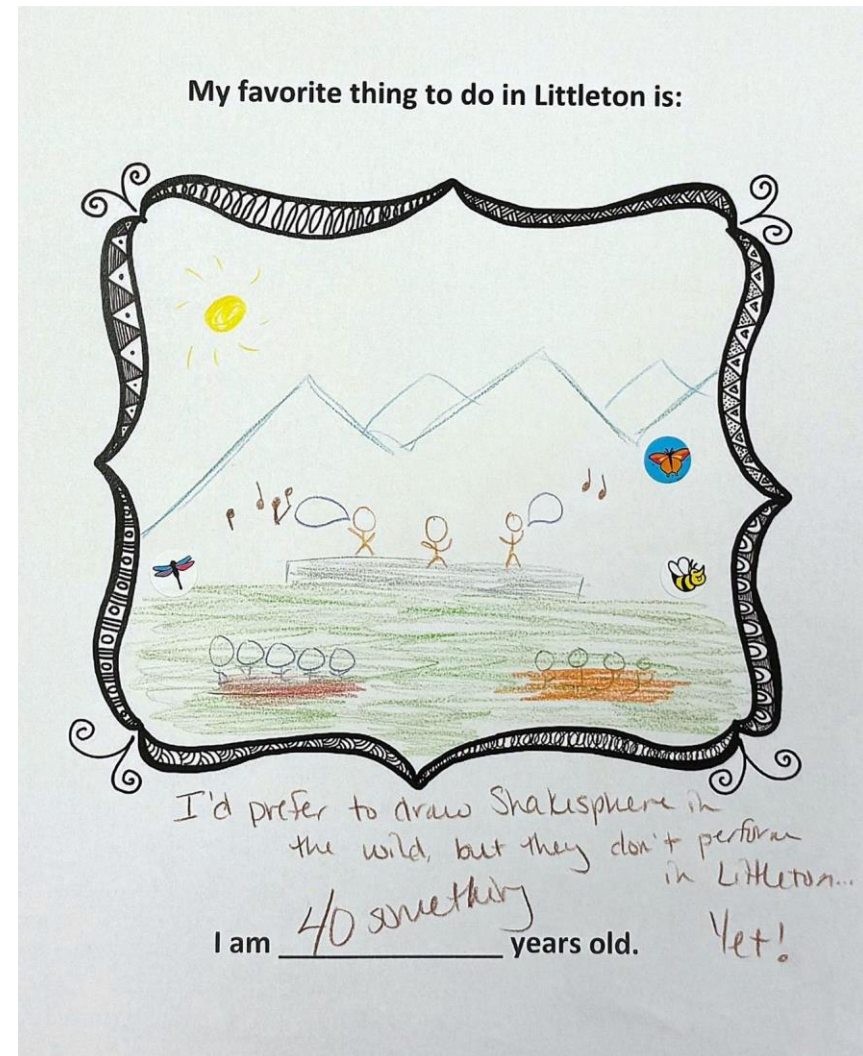 My favorite thing to do in Littleton is:
I'd prefer to draw Shakesphere in
the wild, but they don't perform
in Littleton...
Yet!
I am 40 something years old.